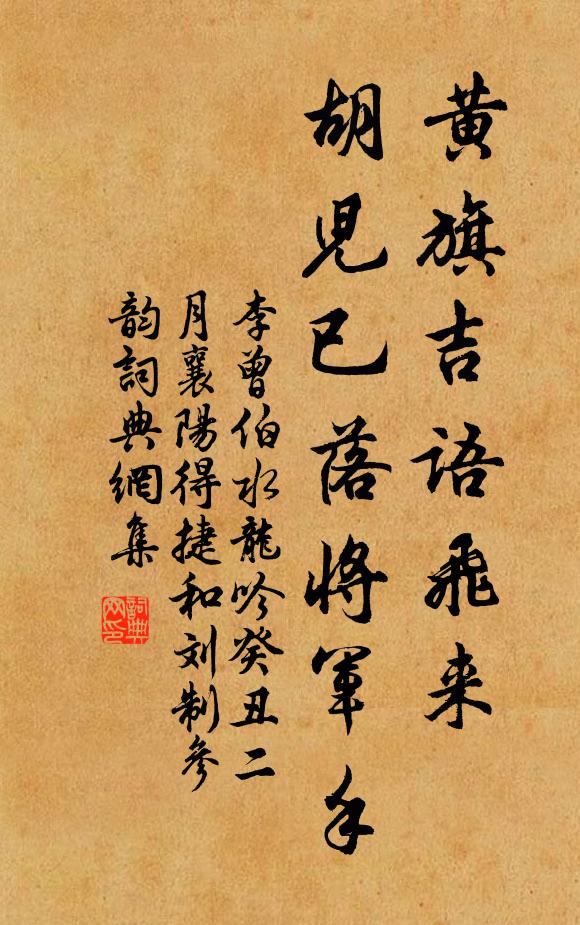 黄旗吉语飛来
胡児已落将軍手
李曾伯水龍吟癸丑二
月襄陽得捷和刘制參
韵詞典網集
詞典
网印